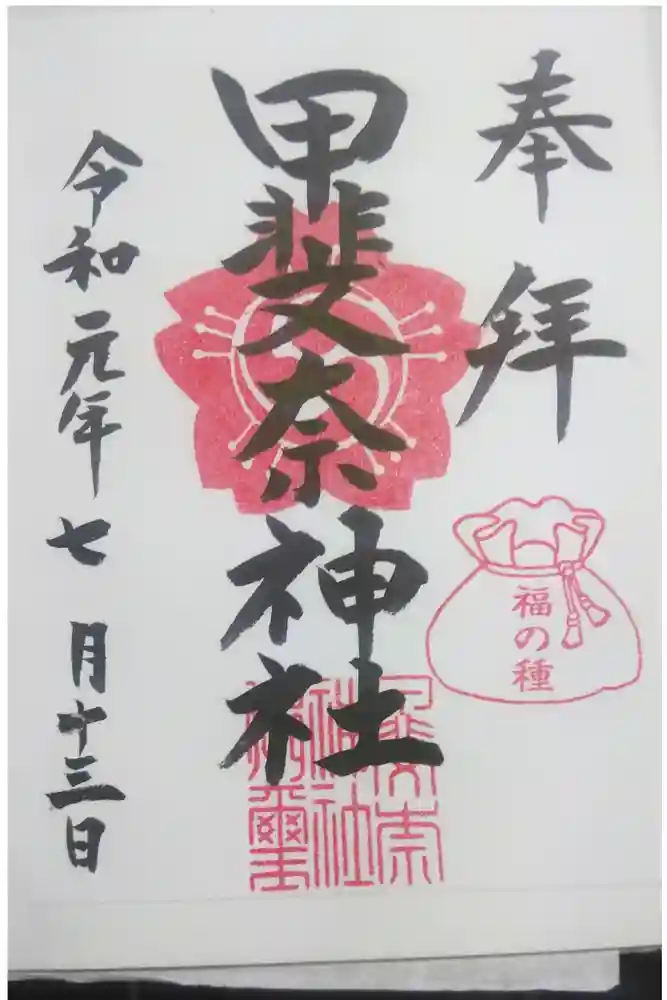 奉拝
福の種
甲斐奈神社
甲斐奈
神社
令和元年七月十三日